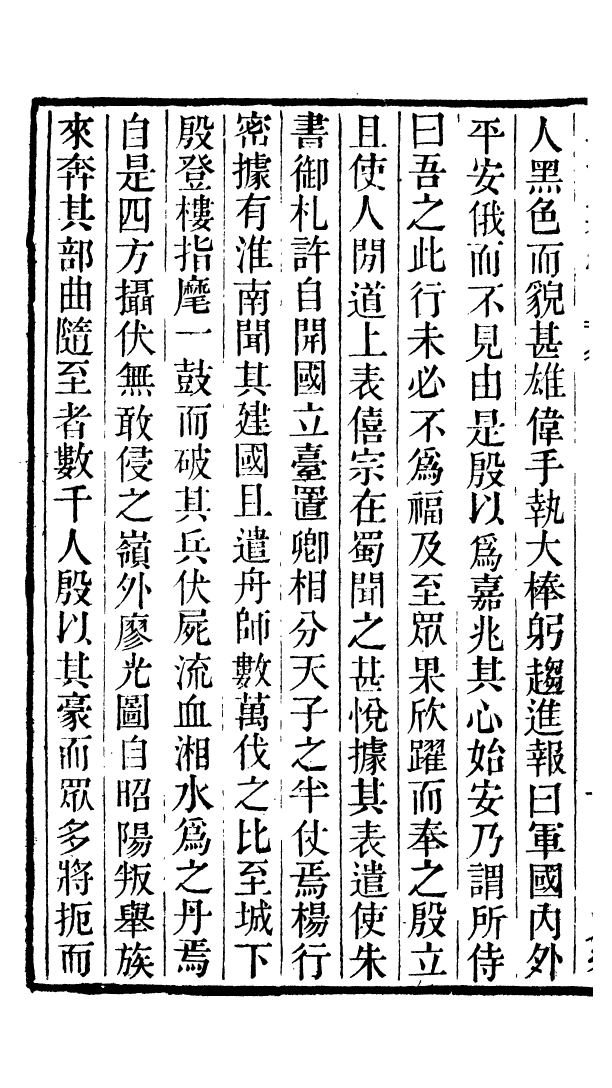 人黑色而貌甚雄偉手執大棒躬趨進報曰軍國內外
平安俄而不見由是殷以爲嘉兆其心始安乃謂所侍
曰吾之此行未必不爲福及至眾果欣躍而奉之殷立
且使人閒道上表僖宗在蜀聞之甚悅據其表遣使朱
書御札許自開國立臺置卿相分天子之半仗焉楊行
密據有淮南聞其建國且遣舟師數萬伐之比至城下
殷登樓指麾一鼓而破其兵伏屍流血湘水爲之丹焉
自是四方攝伏無敢侵之嶺外廖光圖自昭陽叛舉族
來奔其部曲隨至者數千人殷以其豪而眾多將扼而